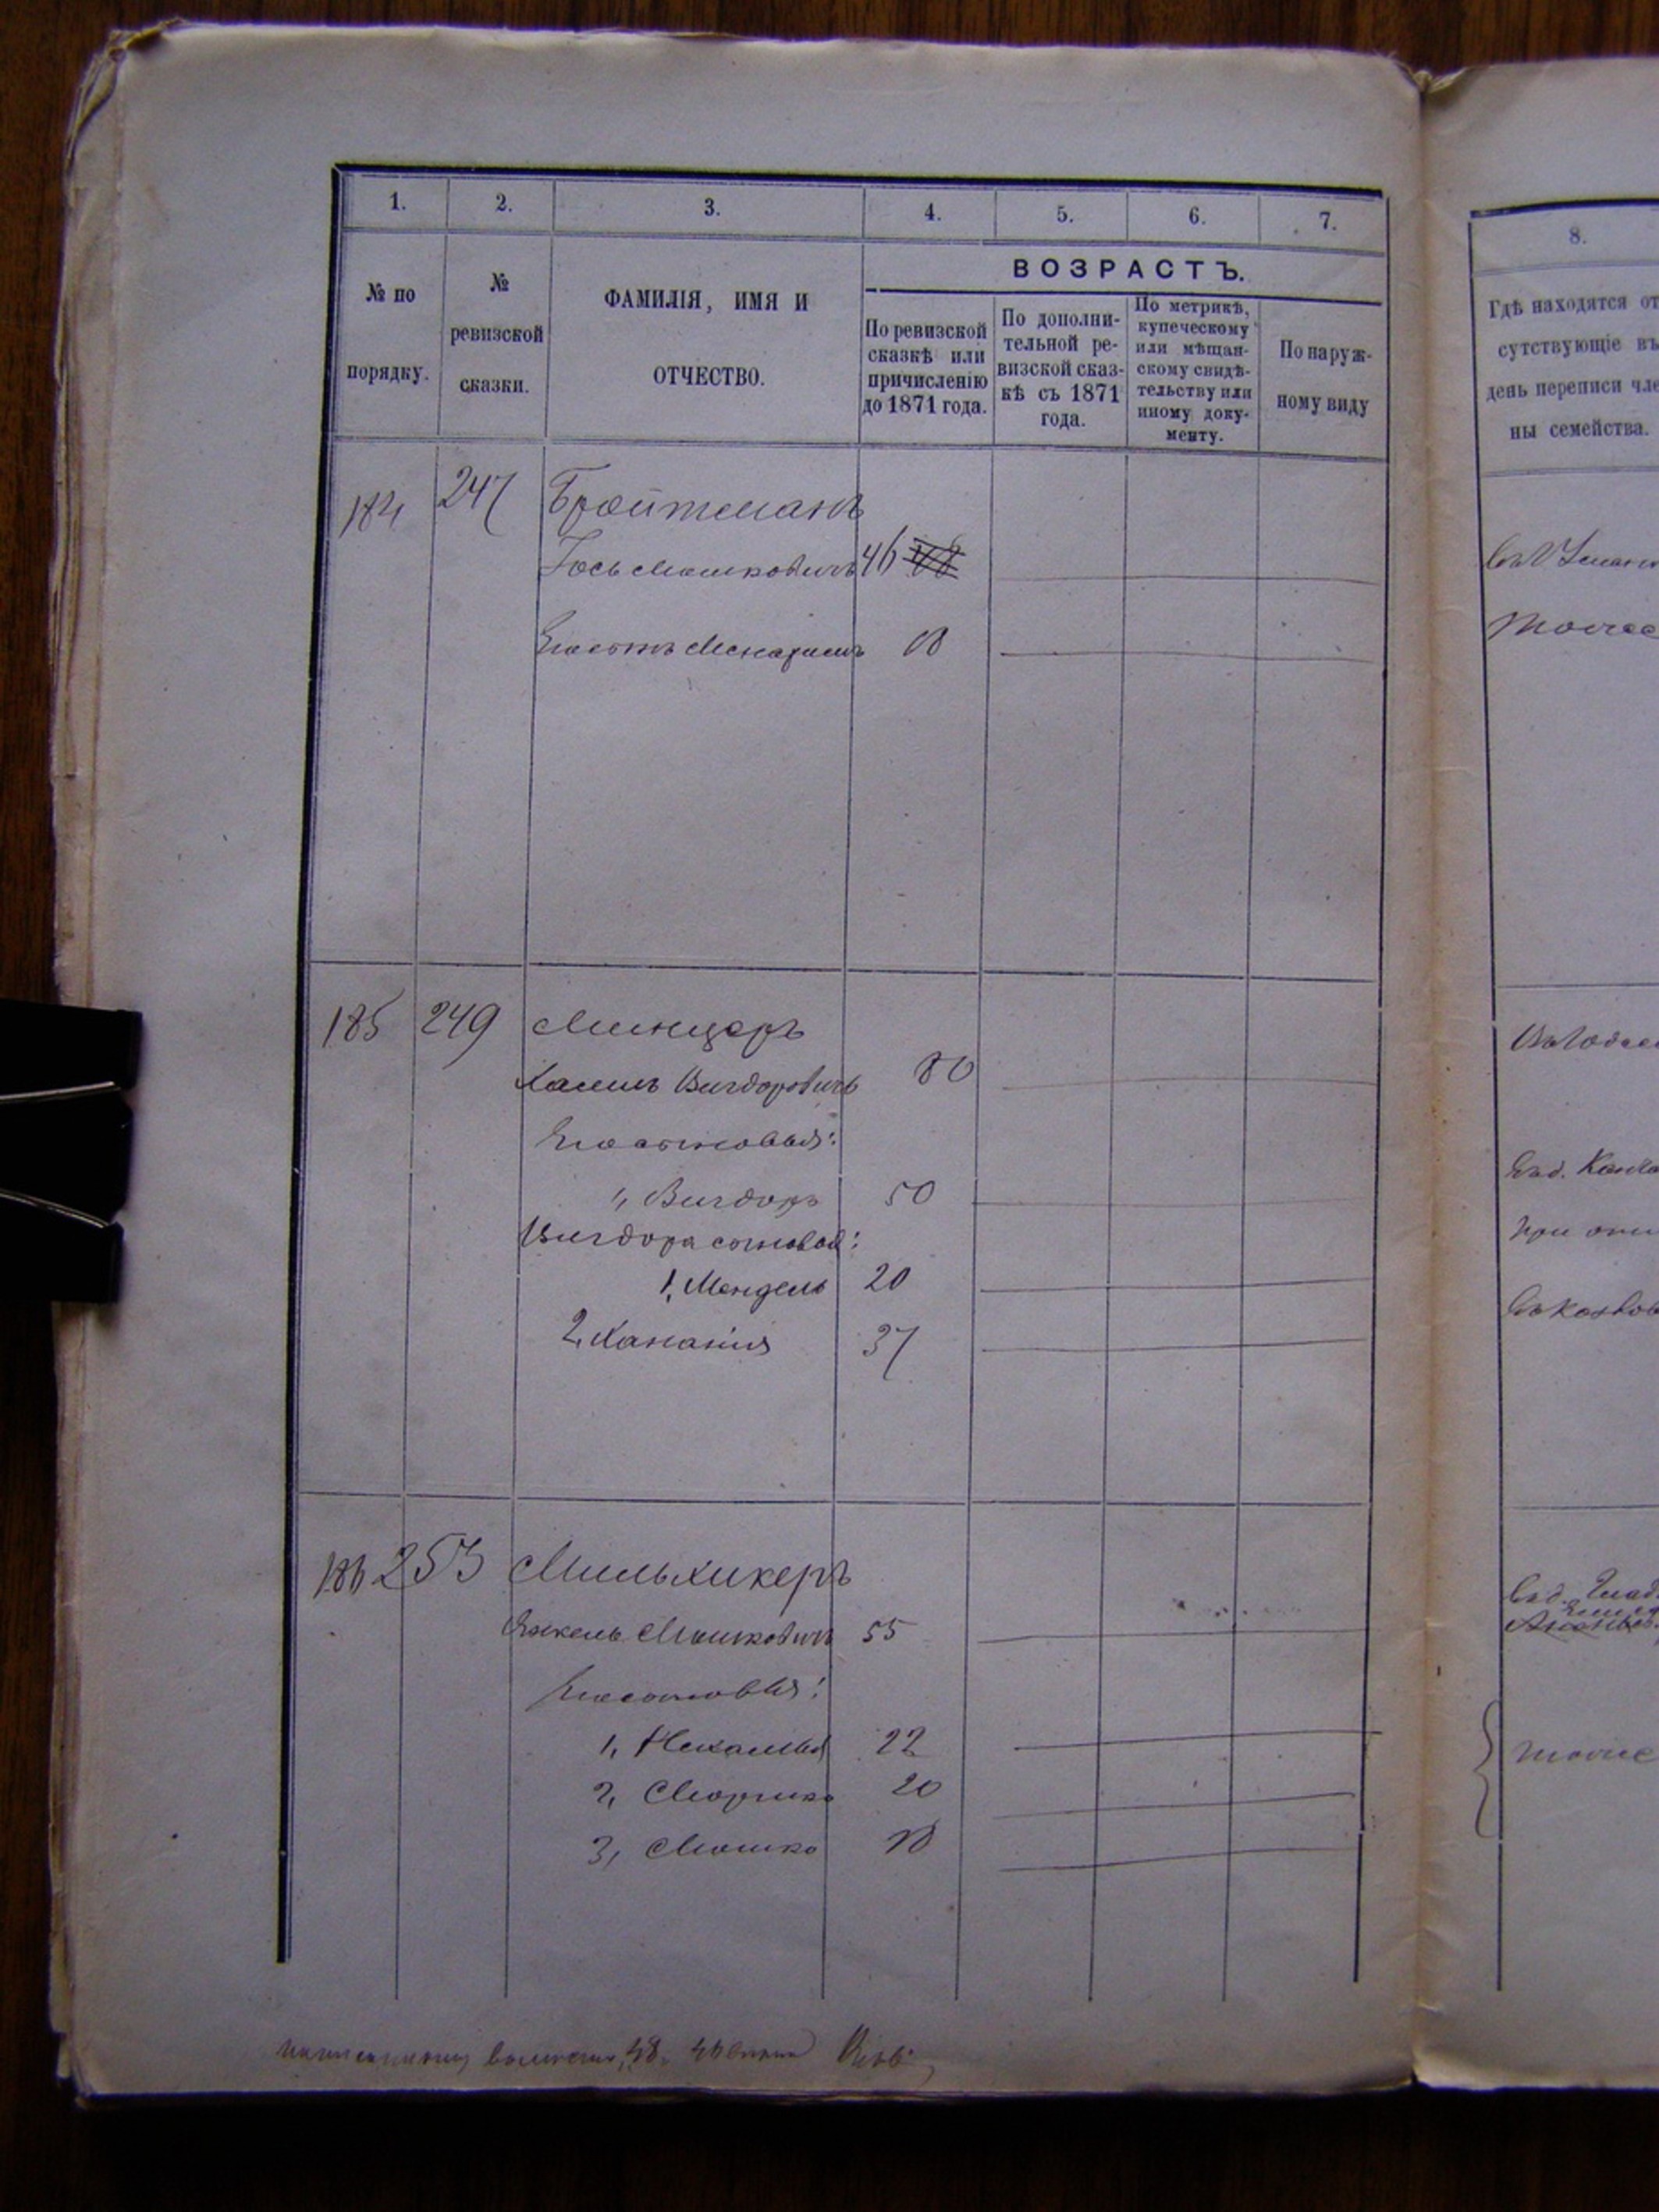 1. 2. 3. 4. 5. 6. 7.
ВОЗРАСТЪ.
№ по
порядку.
№
ревизской
сказки.
ФАМИЛІЯ, ИМЯ И
ОТЧЕСТВО.
По ревизской
сказкѣ или
причисленію
до 1871 года.
По дополни-
тельной ре-
визской сказ-
кѣ съ 1871
года.
По метрикѣ,
купеческому
или мѣщан-
скому свидѣ-
тельству или
иному доку-
менту.
По наруж-
ному виду
184 247 Бройтманъ
Іось Мошковичъ 46
Его сынъ Менахемъ
185 249 Минцеръ
Хаимъ Вигдоровичъ 80
Его сыновья:
1, Вигдоръ 50
Вигдора сыновья:
1, Мендель 20
2, Ханания 37
186 253 Мильхикеръ
Янкель Мошковичъ 55
Его сыновья:
1, Нехамья 22
2, 20
3, Мошко
8.
Гдѣ находятся от
сутствующіе въ
день переписи чле
ны семейства.